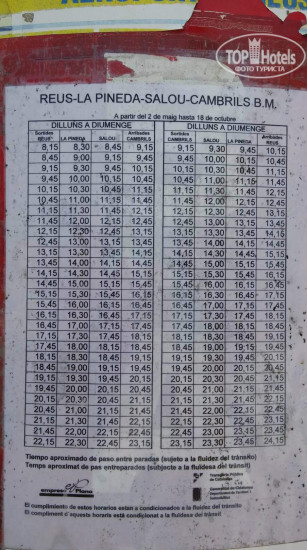 TOPHotels
ФОТО ТУРИСТА
REUS-LA PINEDA-SALOU-CAMBRILS B.M.
A partir del 2 de maig hasta 18 de octubre
DILLUNS A DIUMENGE DILLUNS A DIUMENGE
Sortides REUS LA PINEDA SALOU Arribades CAMBRILS Sortides CAMBRILS SALOU LA PINEDA Arribades REUS
8,15 8,30 8,45 9,15 9,15 9,30 9,45 10,15
8,45 9,00 9,15 9,45 9,45 10,00 10,15 10,45
9,15 9,30 9,45 10,15 10,15 10,30 10,45 11,15
9,45 10,00 10,15 10,45 10,45 11,00 11,15 11,45
10,15 10,30 10,45 11,15 11,15 11,30 11,45 12,15
10,45 11,00 11,15 11,45 11,45 12,00 12,15 12,45
11,15 11,30 11,45 12,15 12,15 12,30 12,45 13,15
11,45 12,00 12,15 12,45 12,45 13,00 13,15 13,45
12,15 12,30 12,45 13,15 13,15 13,30 13,45 14,15
12,45 13,00 13,15 13,45 13,45 14,00 14,15 14,45
13,15 13,30 13,45 14,15 14,15 14,30 14,45 15,15
13,45 14,00 14,15 14,45 14,45 15,00 15,15 15,45
14,15 14,30 14,45 15,15 15,15 15,30 15,45 16,15
14,45 15,00 15,15 15,45 15,45 16,00 16,15 16,45
15,15 15,30 15,45 16,15 16,15 16,30 16,45 17,15
15,45 16,00 16,15 16,45 16,45 17,00 17,15 17,45
16,15 16,30 16,45 17,15 17,15 17,30 17,45 18,15
16,45 17,00 17,15 17,45 17,45 18,00 18,15 18,45
17,15 17,30 17,45 18,15 18,15 18,30 18,45 19,15
17,45 18,00 18,15 18,45 18,45 19,00 19,15 19,45
18,15 18,30 18,45 19,15 19,15 19,30 19,45 20,15
18,45 19,00 19,15 19,45 19,45 20,00 20,15 20,45
19,15 19,30 19,45 20,15 20,15 20,30 20,45 21,15
19,45 20,00 20,15 20,45 20,45 21,00 21,15 21,45
20,15 20,30 20,45 21,15 21,15 21,30 21,45 22,15
20,45 21,00 21,15 21,45 21,45 22,00 22,15 22,45
21,15 21,30 21,45 22,15 22,15 22,30 22,45 23,15
21,45 22,00 22,15 22,45 22,45 23,00 23,15 23,45
22,15 22,30 22,45 23,15 23,15 23,30 23,45 24,15
Tiempo aproximado de paso entre paradas (sujeto a la fluidez del tránsito)
Temps aproximat de pas entreparades (subjecte a la fluidesa del trànsit)
empresa Plana
Generalitat de Catalunya
El cumplimiento de estos horarios estan a condicionados a la fluidez del tránsito
El compliment d'aquests horaris està condicionat a la fluidesa del trànsit